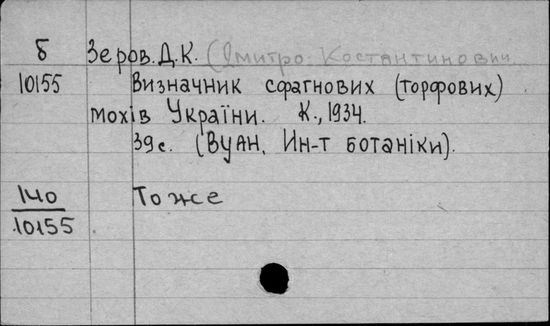 Б Зеров. Д. К. (Дмитро Костантинович
10155 Визначник сфагнових (торфових)
мохів України. К., 1934.
39 с. (ВУАН. Ин-т ботаніки).
140 То же
10155